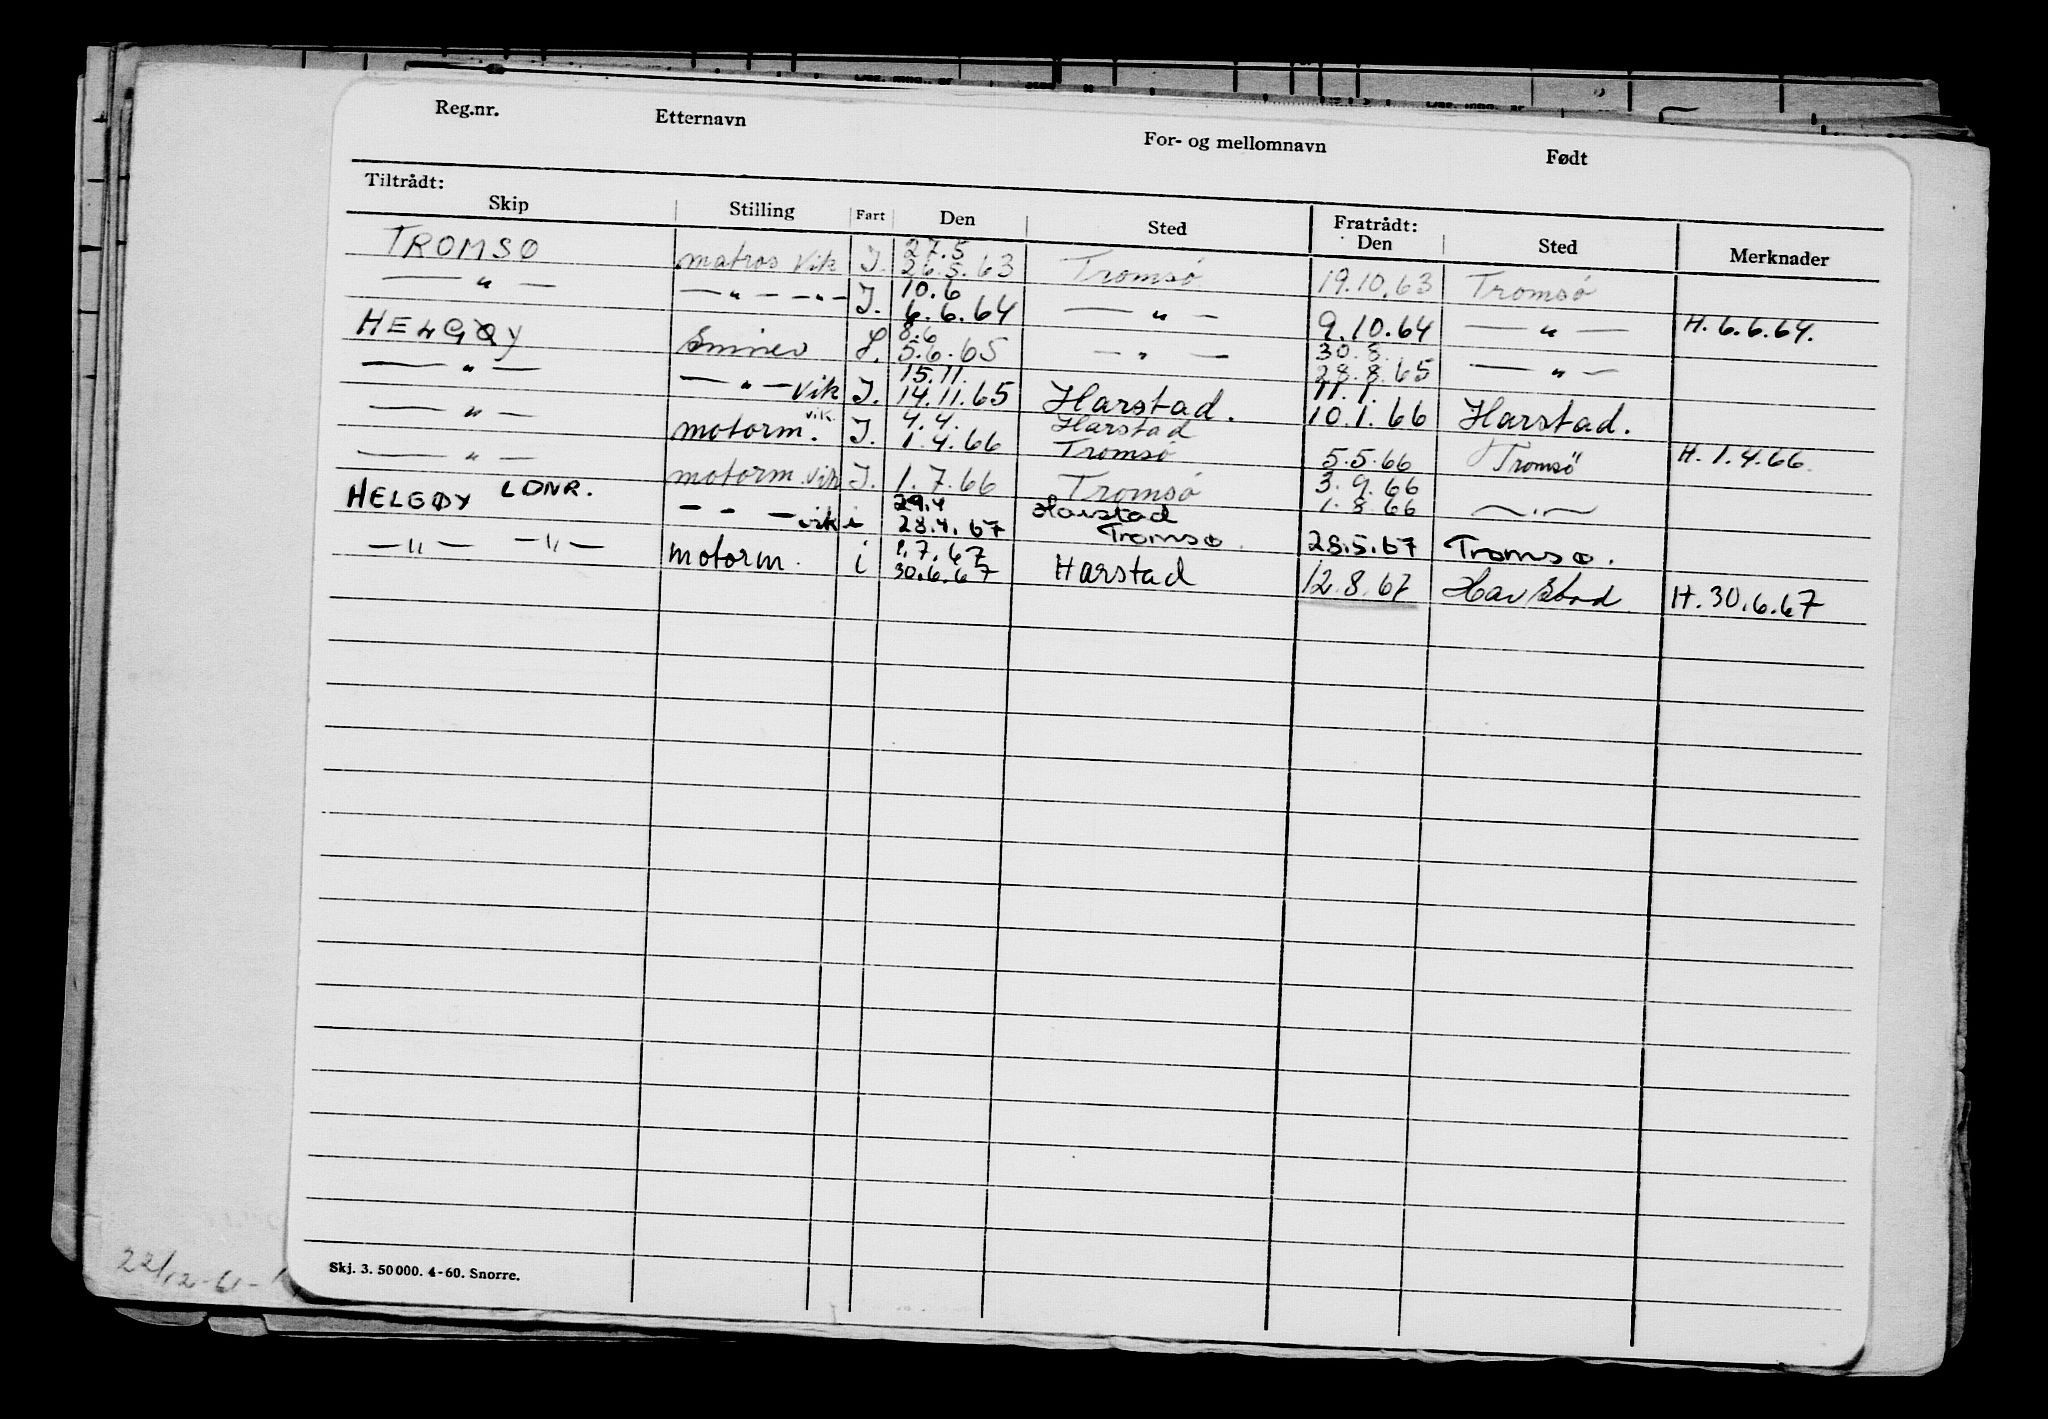 Reg.nr. Etternavn For- og mellomnavn Født
Tiltrådt: Fratrådt:
Skip Stilling Fart Den Sted Den Sted Merknader
TROMSØ matros vik J. 27.5 26.5.63 Tromsø 19.10.63 Tromsø
— " — — " — — " — J. 10.6 6.6.64 — " — 9.10.64 — " — H. 6.6.64.
HELGØY 8.6 5.6.65 — " — 30.8. 28.8.65 — " —
— " — — " — vik J. 15.11. 14.11.65 Harstad. 11.1. 10.1.66 Harstad.
— " — motorm. vik. J. 4.4. 1.4.66 Harstad Tromsø 5.5.66 Tromsø H. 1.4.66.
— " — motorm. vik J. 1.7.66 Tromsø 3.9.66 1.8.66 — " —
HELGØY LDNR. — – — vik i 29.4 28.4.67 Harstad Tromsø. 28.5.67 Tromsø.
— " — — " — motorm. i 1.7.67 30.6.67 Harstad 12.8.67 Harstad H. 30.6.67
Skj. 3. 50000. 4-60. Snorre.
22/12-61-